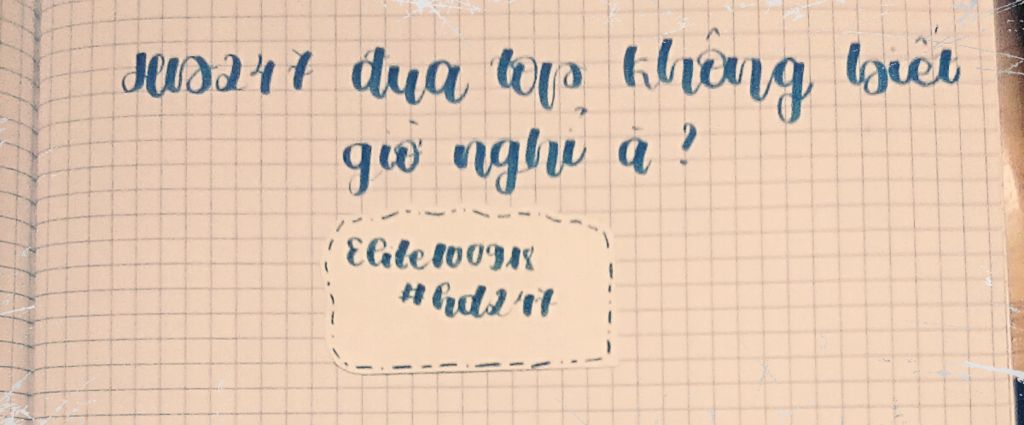 HD247 đua top không biết
giờ nghỉ à?
Elite100918
#hd247